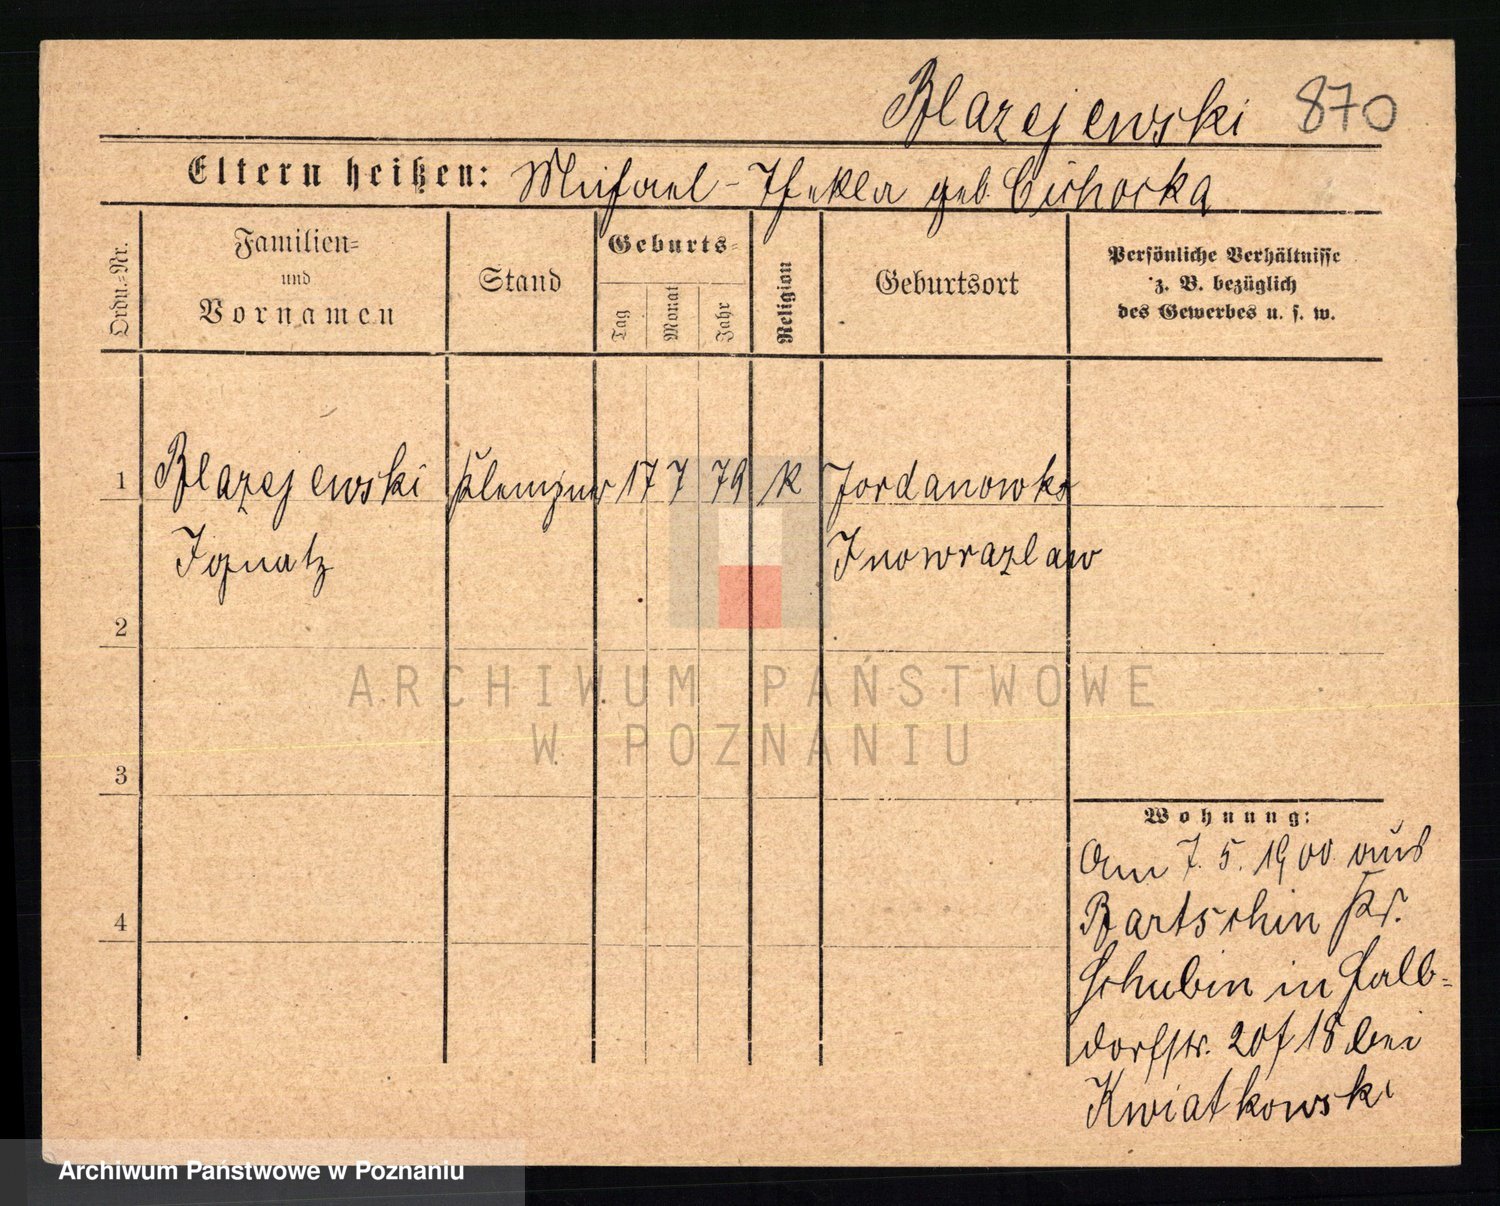 Blazejewski 870
Eltern heißen: Michael - Thekla geb. Cichocka
Ordn.-Nr.
Familien-
und
Vornamen
Stand
Geburts-
Tag
Monat
Jahr
Religion
Geburtsort
Persönliche Verhältnisse
z. B. bezüglich
des Gewerbes u. s. w.
1 Blazejewski Klempner 17 7 79 K Jordanowko
Ignatz Inowrazlaw
2
ARCHIWUM PAŃSTWOWE
W POZNANIU
3
Wohnung:
Am 7. 5. 1900 aus
Bartschin Kr.
4
Schubin in Halb-
dorfstr. 20 18 bei
Kwiatkowski
Archiwum Państwowe w Poznaniu